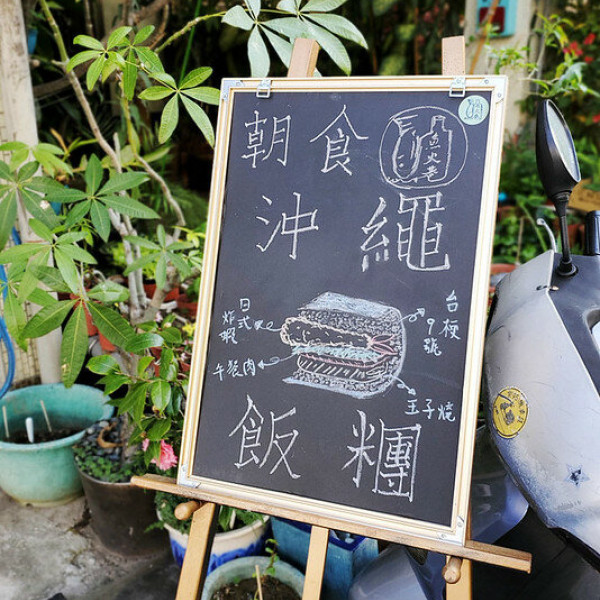 朝食
点火巷
沖繩
日式
炸蝦
午餐肉
台稉
9號
玉子燒
飯糰